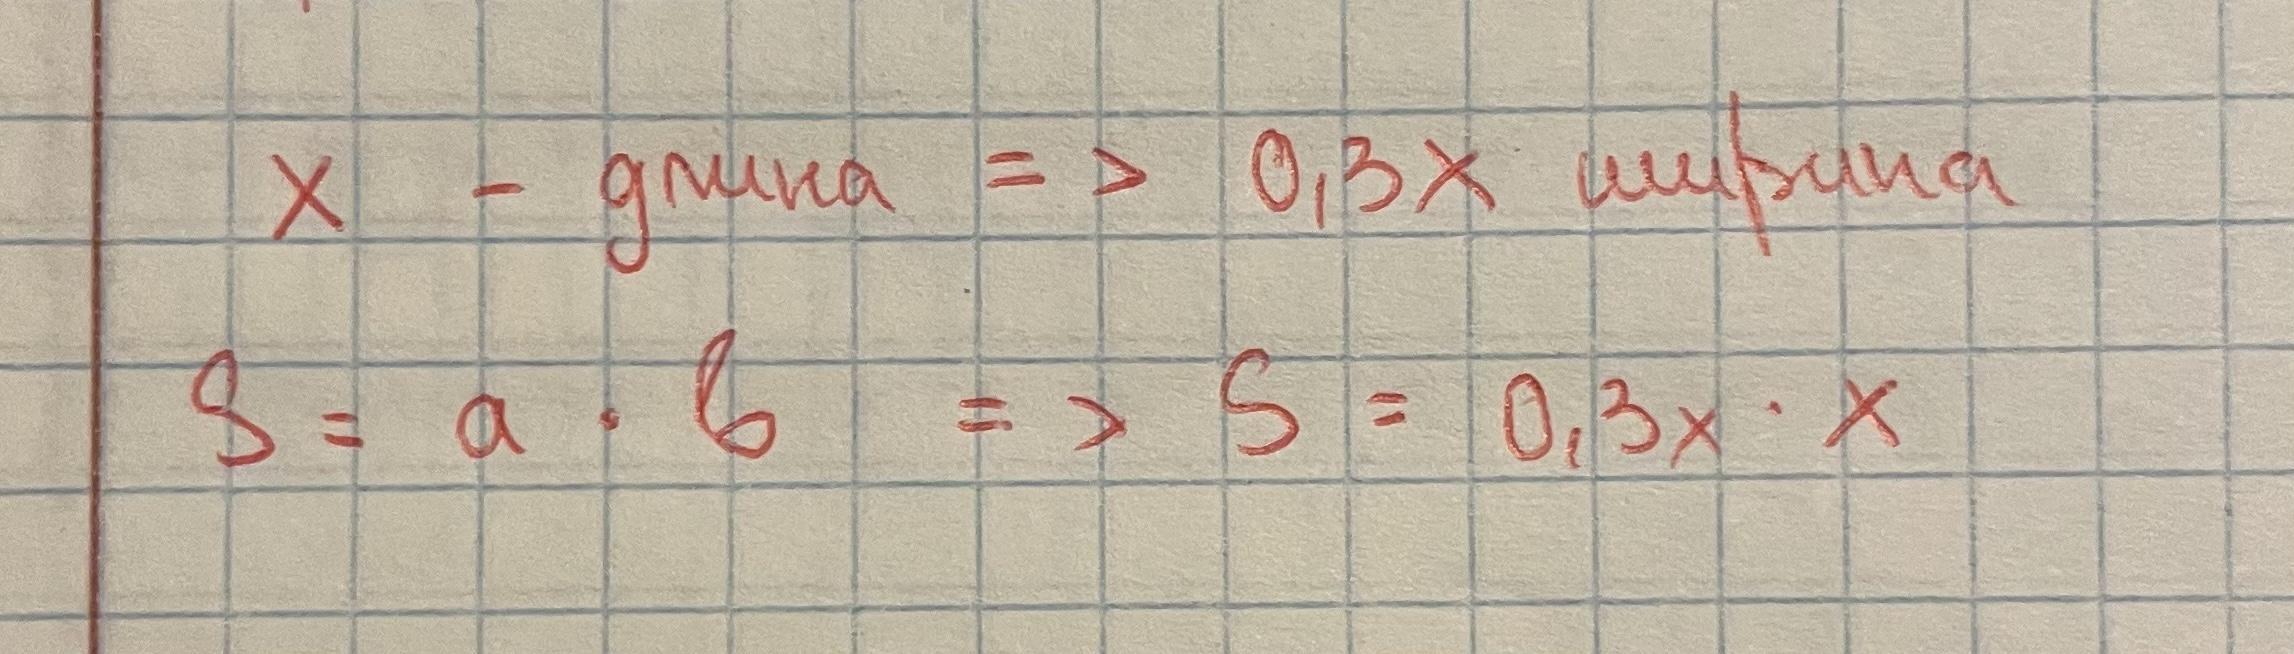 x - длина => 0,3x ширина
S = a · b => S = 0,3x · x